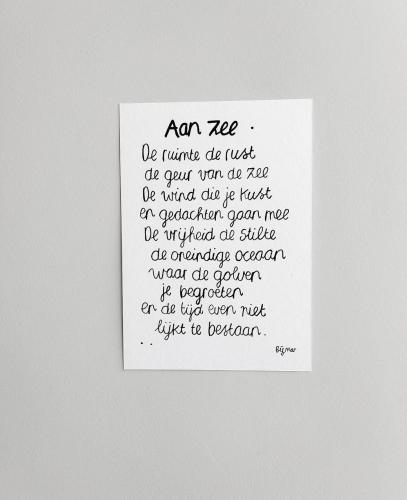 Aan Zee.
De ruimte de rust
de geur van de zee
De wind die je kust
en gedachten gaan mee
De vrijheid de stilte
de oneindige oceaan
waar de golven
je begroeten
en de tijd even niet
lijkt te bestaan.
..
Bijmar